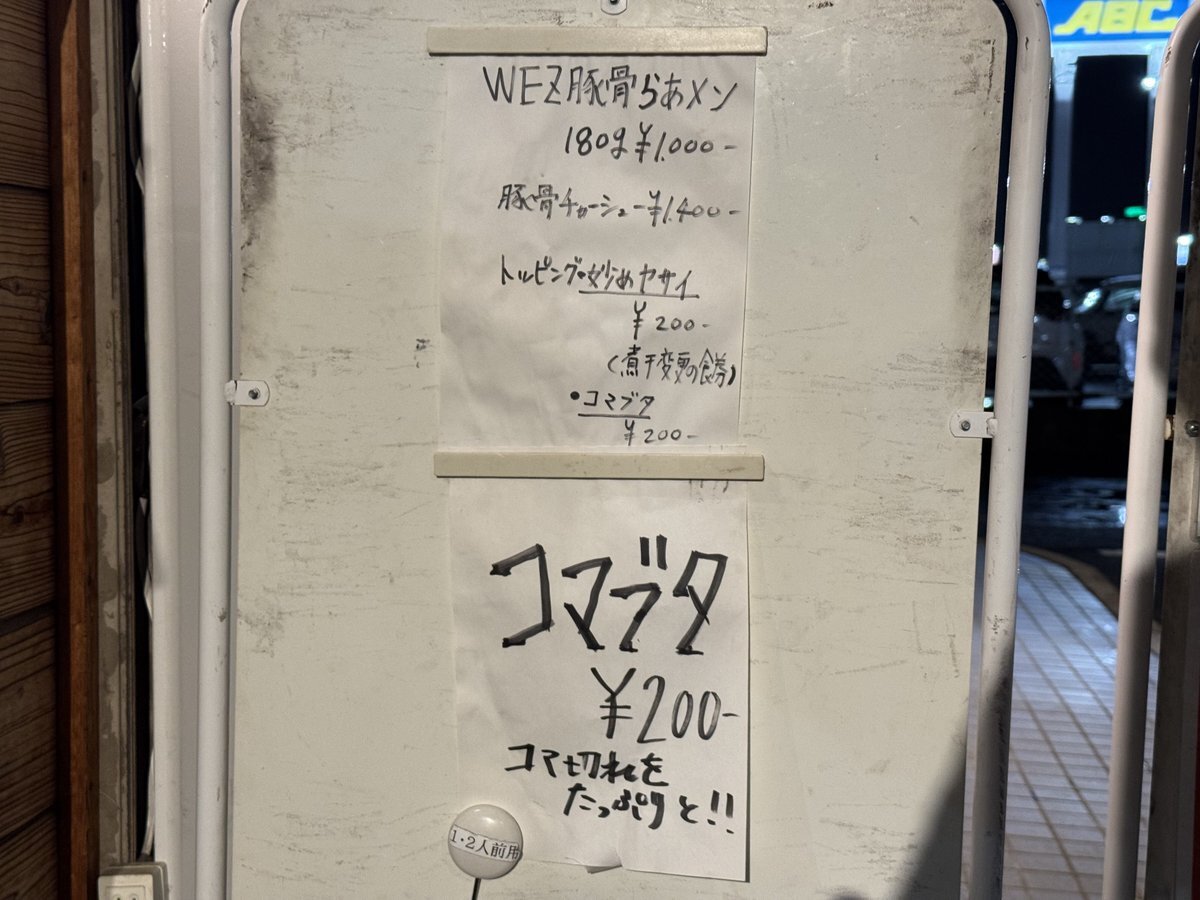 ABC
WEZ豚骨らあメン
180g ¥1.000-
豚骨チャーシュー ¥1.400-
トッピング・炒めヤサイ
¥200-
(煮干変更の食券)
•コマブタ
¥200-
コマブタ
¥200-
コマ切れを
たっぷりと!!
1・2人前用